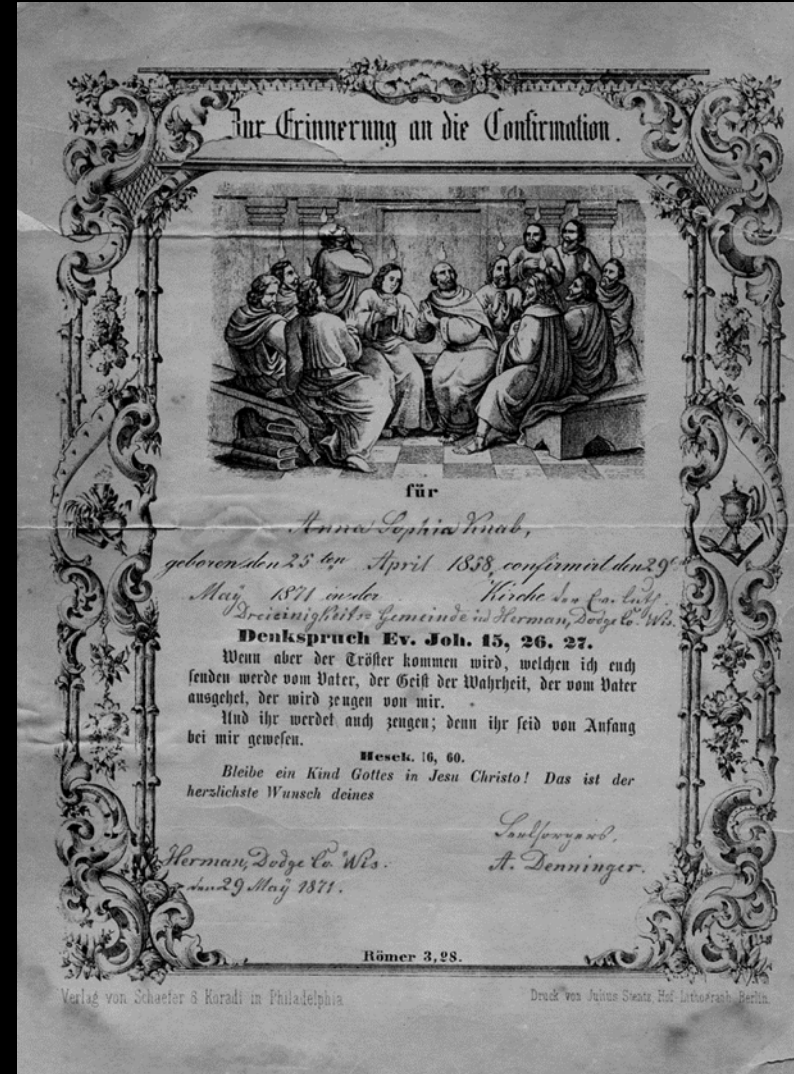 Zur Erinnerung an die Confirmation.
für
Anna Sophia Knab,
geboren den 25ten April 1858, confirmirt den 29ten
May 1871 in der Kirche der Ev. luth.
Dreieinigkeits Gemeinde in Herman, Dodge Co. Wis.
Denkspruch Ev. Joh. 15, 26. 27.
Wenn aber der Tröster kommen wird, welchen ich euch
senden werde vom Vater, der Geist der Wahrheit, der vom Vater
ausgehet, der wird zeugen von mir.
Und ihr werdet auch zeugen; denn ihr seid von Anfang
bei mir gewesen.
Hesek. 16, 60.
Bleibe ein Kind Gottes in Jesu Christo! Das ist der
herzlichste Wunsch deines
Seelsorgers.
Herman, Dodge Co. Wis. A. Denninger.
den 29 Maÿ 1871.
Römer 3,28.
Verlag von Schaefer & Koradi in Philadelphia
Druck von Julius Hof-Lithograph, Berlin.